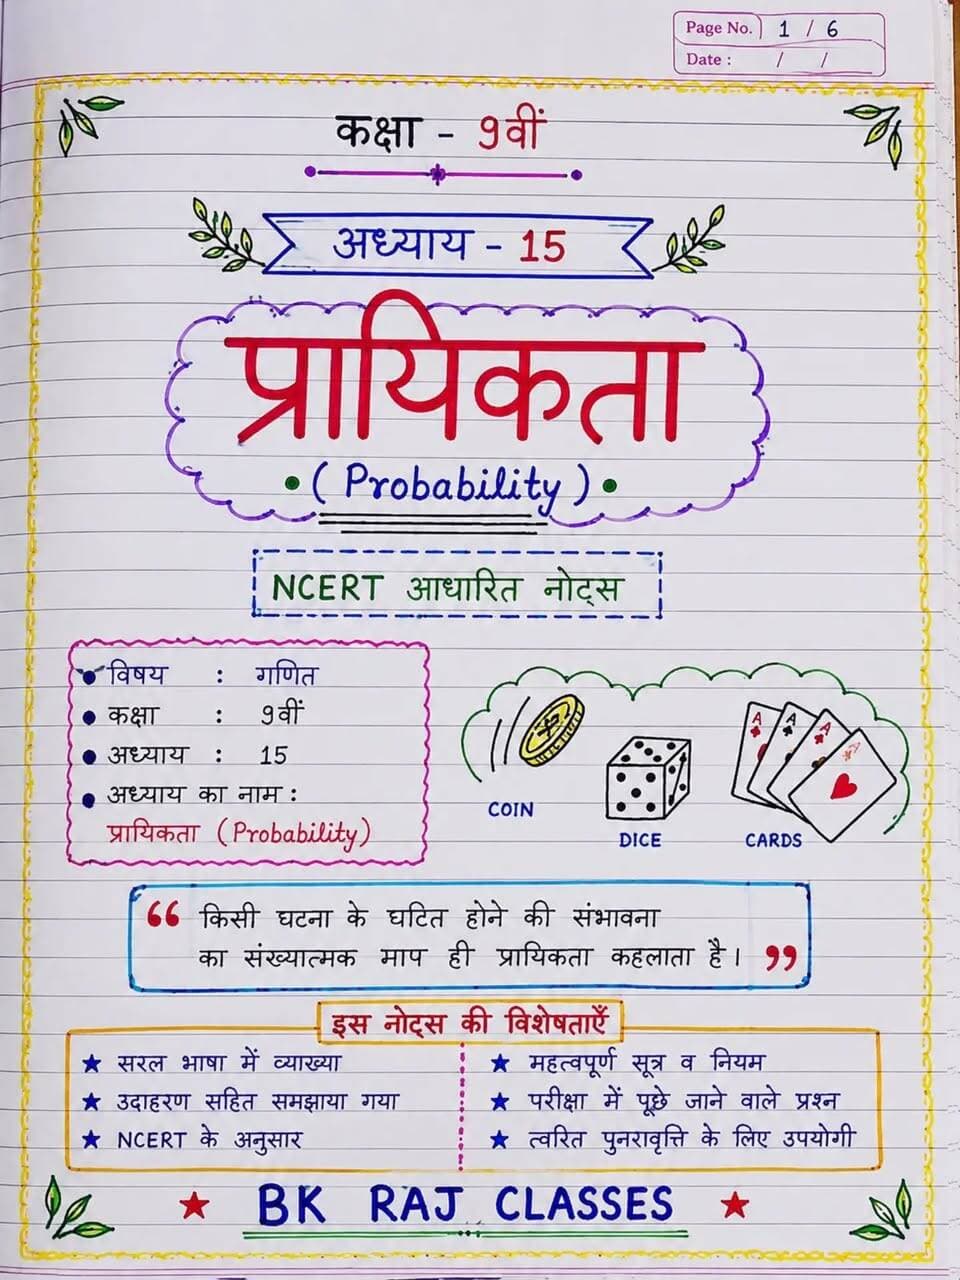 Page No. 1 / 6
Date : / /
कक्षा - 9वीं
अध्याय - 15
प्रायिकता
(Probability)
NCERT आधारित नोट्स
विषय : गणित
कक्षा : 9वीं
अध्याय : 15
अध्याय का नाम :
प्रायिकता (Probability)
COIN
DICE
CARDS
A A A A
“ किसी घटना के घटित होने की संभावना
का संख्यात्मक माप ही प्रायिकता कहलाता है। ”
इस नोट्स की विशेषताएँ
★ सरल भाषा में व्याख्या
★ उदाहरण सहित समझाया गया
★ NCERT के अनुसार
★ महत्वपूर्ण सूत्र व नियम
★ परीक्षा में पूछे जाने वाले प्रश्न
★ त्वरित पुनरावृत्ति के लिए उपयोगी
★ BK RAJ CLASSES ★